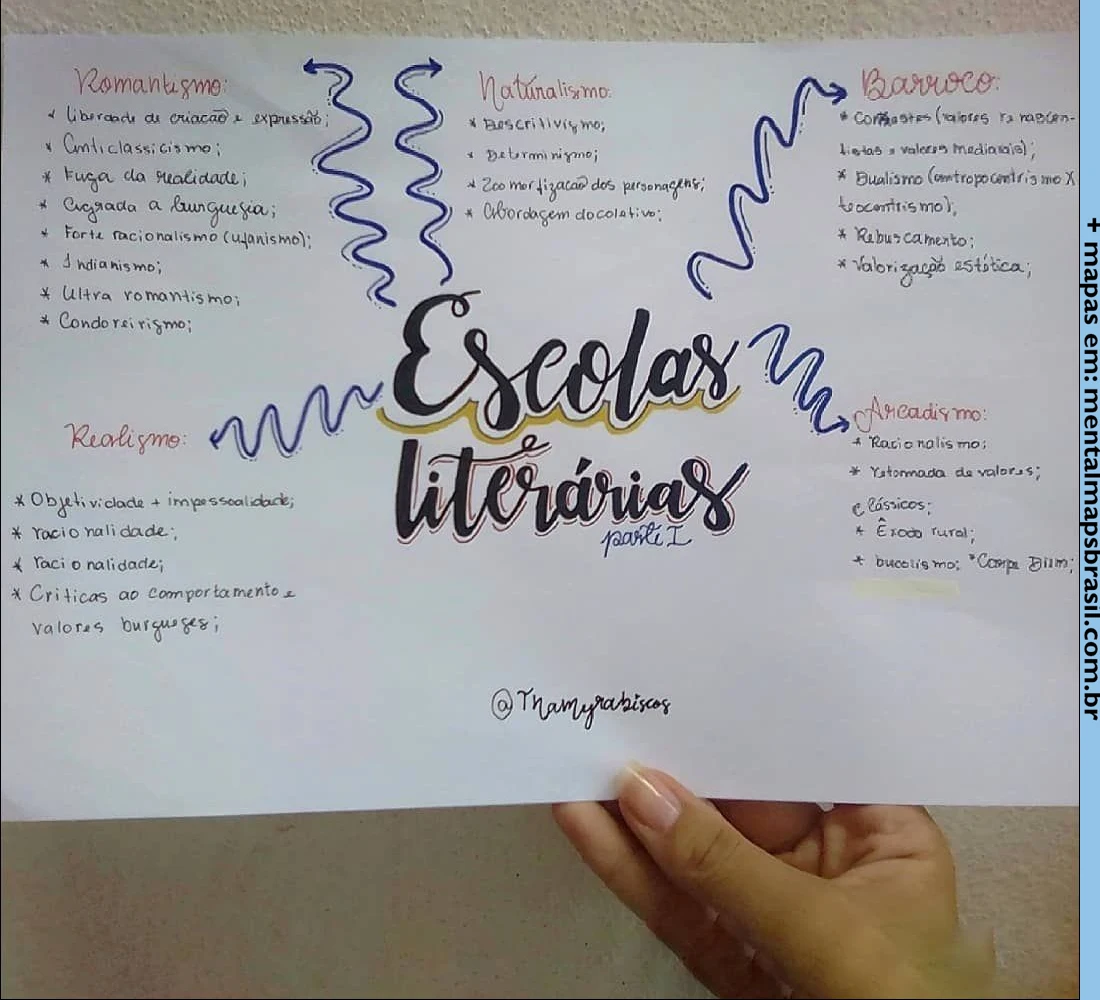 Romantismo:
* liberdade de criação e expressão;
* Anticlassicismo;
* Fuga da realidade;
* Agrada a burguesia;
* Forte racionalismo (ufanismo);
* Indianismo;
* Ultra romantismo;
* Condoreirismo;
Naturalismo:
* Descritivismo;
* Determinismo;
* Zoomorfização dos personagens;
* Abordagem do coletivo;
Barroco:
* Contrastes (valores renascen-
tistas x valores medievais);
* Dualismo (antropocentrismo X
teocentrismo);
* Rebuscamento;
* Valorização estética;
Escolas
literárias
parte I
Realismo:
* Objetividade + impessoalidade;
* racionalidade;
* racionalidade;
* Criticas ao comportamento e
valores burgueses;
Arcadismo:
* Racionalismo;
* retomada de valores;
clássicos;
* Êxodo rural;
* bucolismo; *Carpe Diem;
@Thamyrabiscos
+ mapas em: mentalmapsbrasil.com.br